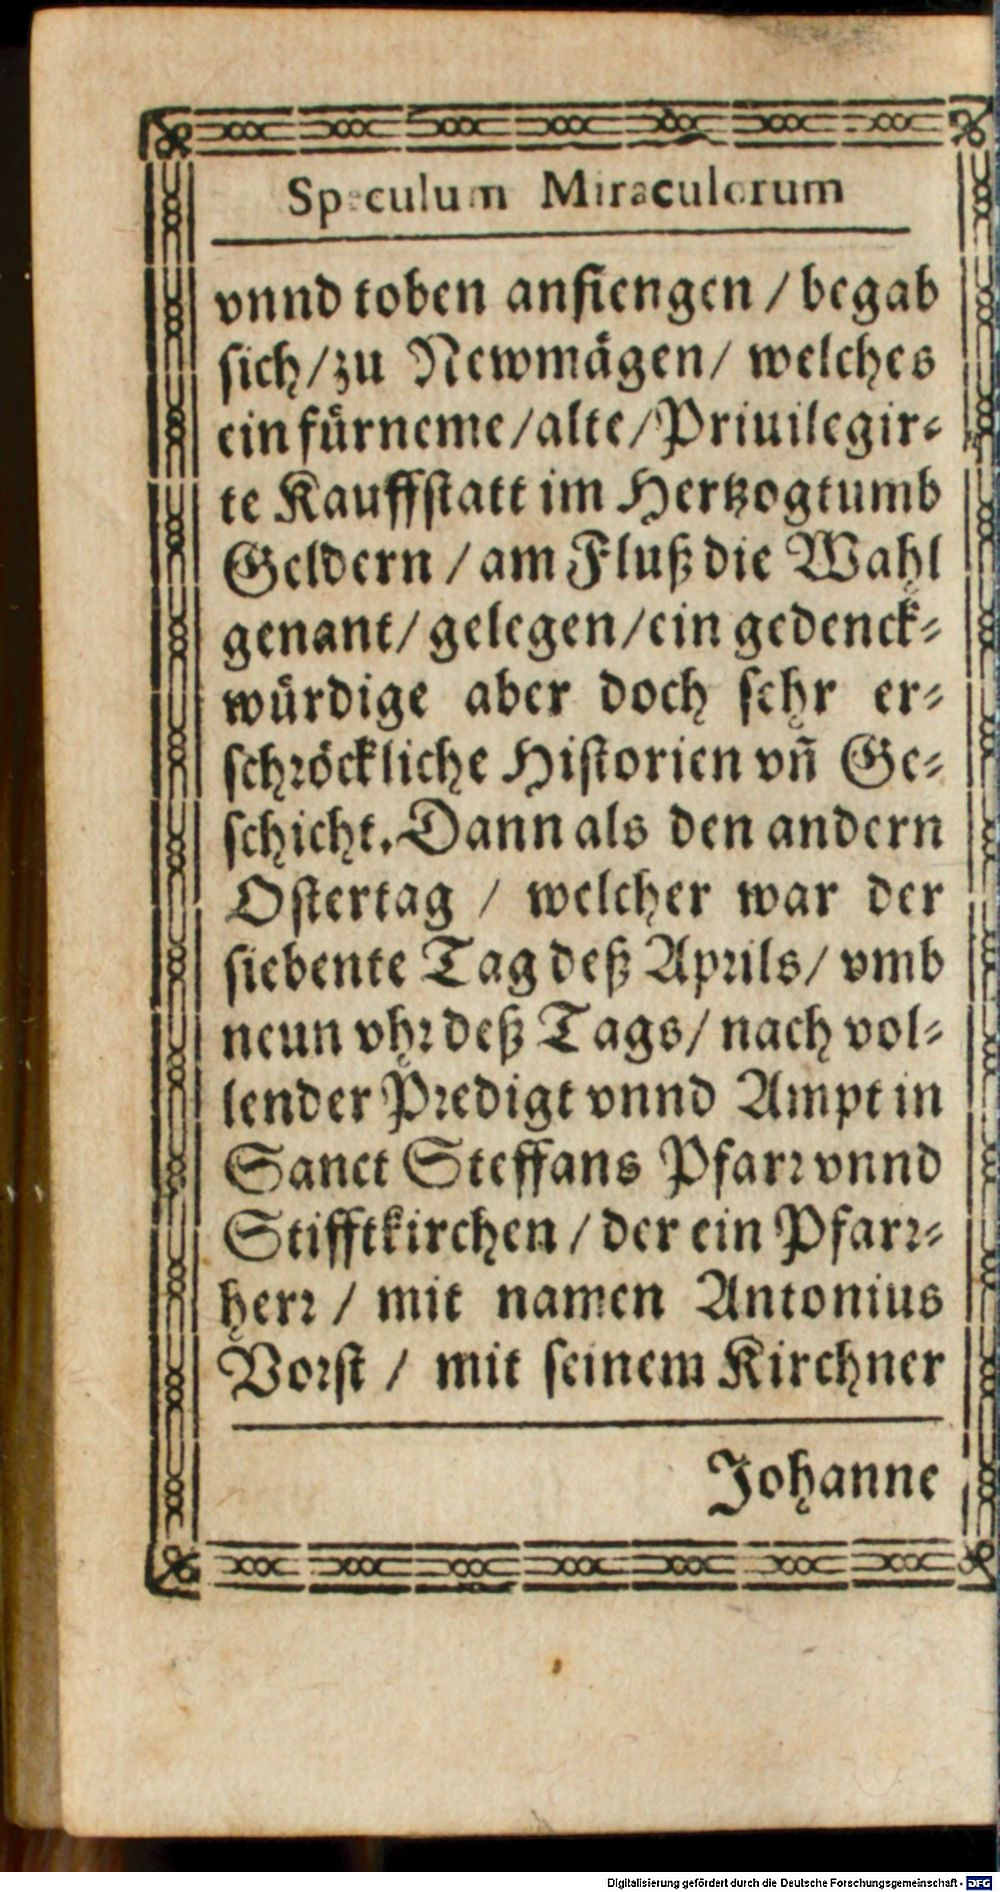 Speculum Miraculorum
vnnd toben anfiengen / begab
sich / zu Newmägen / welches
ein fürneme / alte / Priuilegir-
te Kauffstatt im Hertzogtumb
Geldern / am Fluß die Wahl
genant / gelegen / ein gedenck-
würdige aber doch sehr er-
schröckliche Historien vñ Ge-
schicht. Dann als den andern
Ostertag / welcher war der
siebente Tag deß Aprils / vmb
neun vhr deß Tags / nach vol-
lender Predigt vnnd Ampt in
Sanct Steffans Pfarr vnnd
Stifftkirchen / der ein Pfarr-
herr / mit namen Antonius
Vorst / mit seinem Kirchner
Johanne
Digitalisierung gefördert durch die Deutsche Forschungsgemeinschaft - DFG